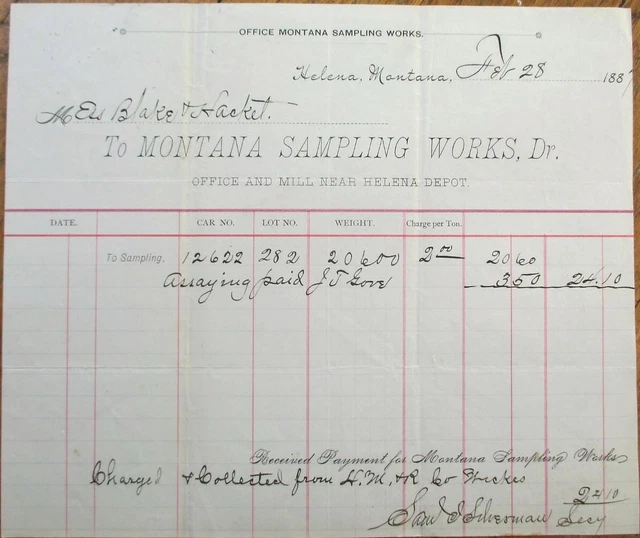 OFFICE MONTANA SAMPLING WORKS.
Helena, Montana, Feb 28 1887
Mess Blake & Hacket.
To MONTANA SAMPLING WORKS, Dr.
OFFICE AND MILL NEAR HELENA DEPOT.
DATE. CAR NO. LOT NO. WEIGHT. Charge per Ton.
To Sampling, 12622 282 20600 2 00 20 60
Assaying paid J T Gove 3 50 24.10
Received Payment for Montana Sampling Works
Charged & Collected from H. M. & R Co Wickes
24 10
Saml Scherman Secy